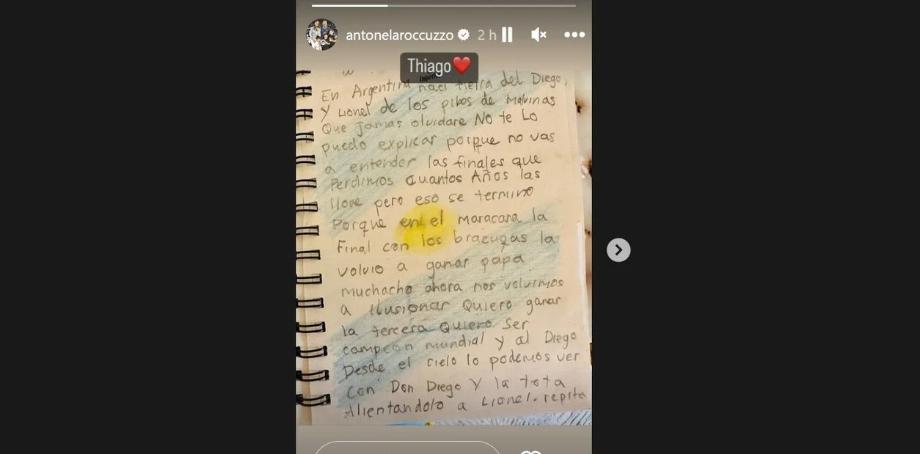 antonelaroccuzzo 2 h
Thiago❤️
En Argentina naci tierra del Diego,
Y Lionel de los pibes de Malvinas
Que jamas olvidare No te Lo
puedo explicar porque no vas
a entender las finales que
Perdimos cuantos Años las
llore pero eso se termino
Porque en el maracana la
Final con los brazucas la
volvio a ganar papa
muchacho ahora nos volvimos
a Ilusionar Quiero ganar
la tercera Quiero ser
campeon mundial y al Diego
Desde el cielo lo podemos ver
Con Don Diego Y la tota
Alientandolo a Lionel. repita